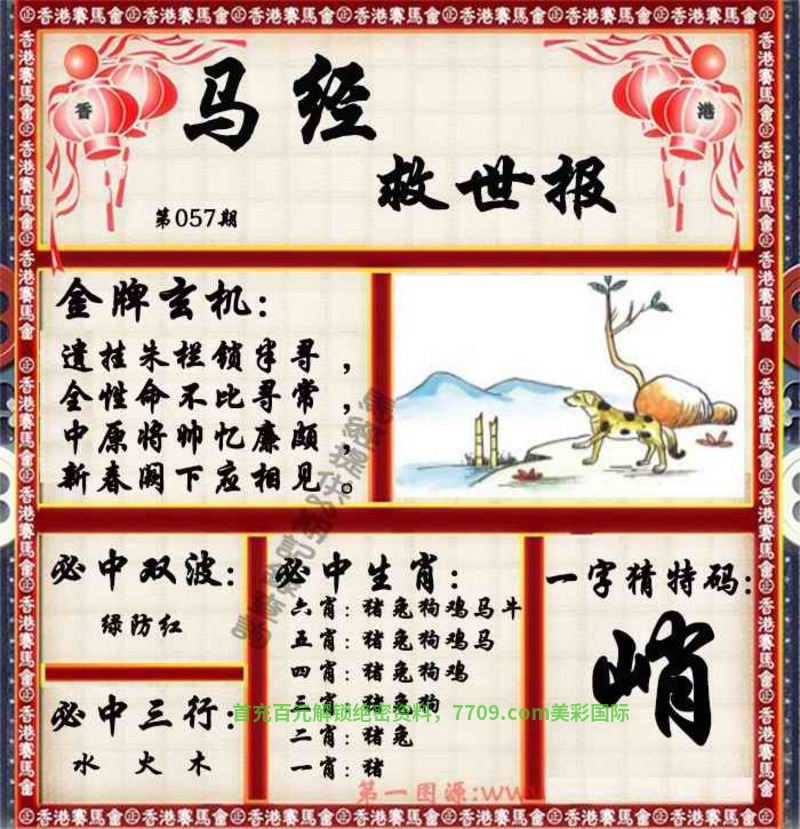 香港賽馬會
香
港
马经
救世报
第057期
金牌玄机：
遗挂朱栏锁半寻，
全性命不比寻常，
中原将帅忆廉颇，
新春阙下应相见。
必中双波：
绿防红
必中三行：
水 火 木
必中生肖：
六肖：猪兔狗鸡马牛
五肖：猪兔狗鸡马
四肖：猪兔狗鸡
三肖：猪兔狗
二肖：猪兔
一肖：猪
一字猜特码：
峭
首充百元解锁绝密资料，7709.com美彩国际
第一图源:www